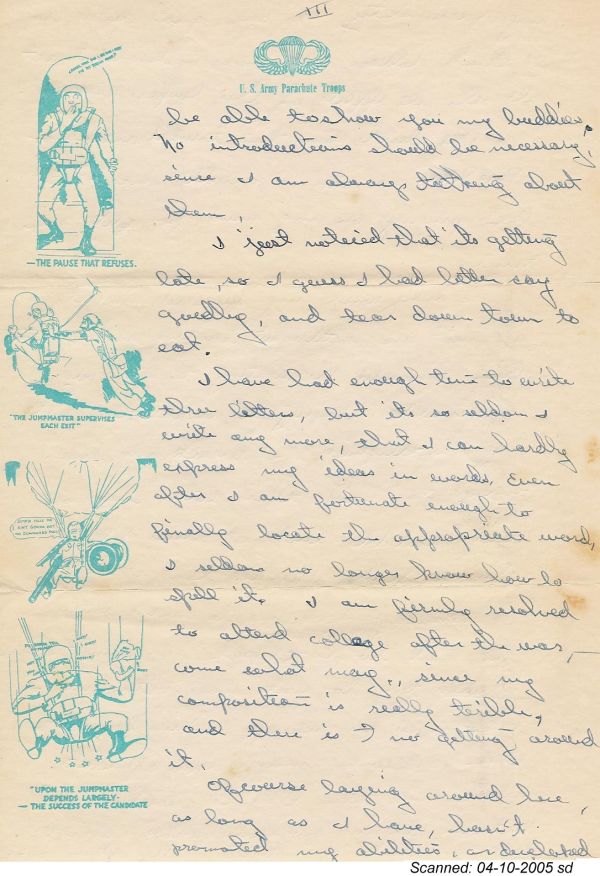 III
U. S. Army Parachute Troops
be able to show you my buddies.
No introductions should be necessary,
sense I am always talking about
them.
I just noticed that its getting
late, so I guess I had better say
goodby, and tear down town to
eat.
I have had enough time to write
three letters, but its so seldom I
write any more, that I can hardly
express my ideas in words. Even
after I am fortunate enough to
finally locate the appropriate word,
I seldom no longer know how to
spell it. I am firmly resolved
to attend collage after the war,
come what may, since my
composition is really terible,
and there is no getting around
it.
Ofcourse laying around here,
as long as I have, hasn't
promoted my abilities, or developed
—THE PAUSE THAT REFUSES.
"THE JUMPMASTER SUPERVISES
EACH EXIT"
"UPON THE JUMPMASTER
DEPENDS LARGELY-
—THE SUCCESS OF THE CANDIDATE
Scanned: 04-10-2005 sd